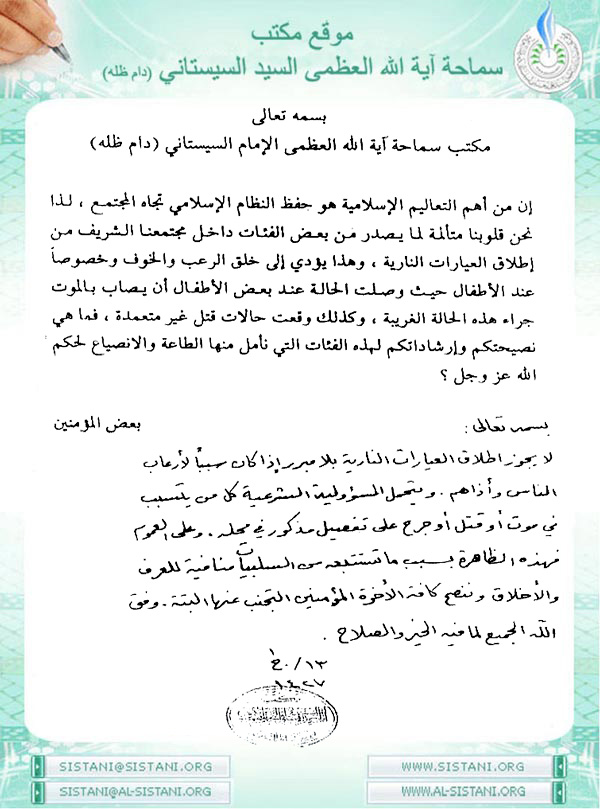 موقع مكتب
سماحة آية الله العظمى السيد السيستاني (دام ظله)
بسمه تعالى
مكتب سماحة آية الله العظمى الإمام السيستاني (دام ظله)
إن من أهم التعاليم الإسلامية هو حفظ النظام الإسلامي تجاه المجتمع ، لذا
نحن قلوبنا متألمة لما يصدر من بعض الفئات داخل مجتمعنا الشريف من
إطلاق العيارات النارية ، وهذا يؤدي إلى خلق الرعب والخوف وخصوصاً
عند الأطفال حيث وصلت الحالة عند بعض الأطفال أن يصاب بالموت
جراء هذه الحالة الغريبة ، وكذلك وقعت حالات قتل غير متعمدة ، فما هي
نصيحتكم وإرشاداتكم لهذه الفئات التي نأمل منها الطاعة والانصياع لحكم
الله عز وجل ؟
بعض المؤمنين
بسمه تعالى :
لا يجوز اطلاق العيارات النارية بلا مبرر إذا كان سبباً لأرعاب
الناس وأذاهم . ويتحمل المسؤولية الشرعية كل من يتسبب
في موت أو قتل أو جرح على تفصيل مذكور في محله . وعلى العموم
فهذه الظاهرة بسبب ما تستتبعه من السلبيات منافية للعرف
والأخلاق وننصح كافة الأخوة المؤمنين التجنب عنها البتة . وفق
الله الجميع لما فيه الخير والصلاح .
١٤٢٧
SISTANI@SISTANI.ORG
WWW.SISTANI.ORG
SISTANI@AL-SISTANI.ORG
WWW.AL-SISTANI.ORG